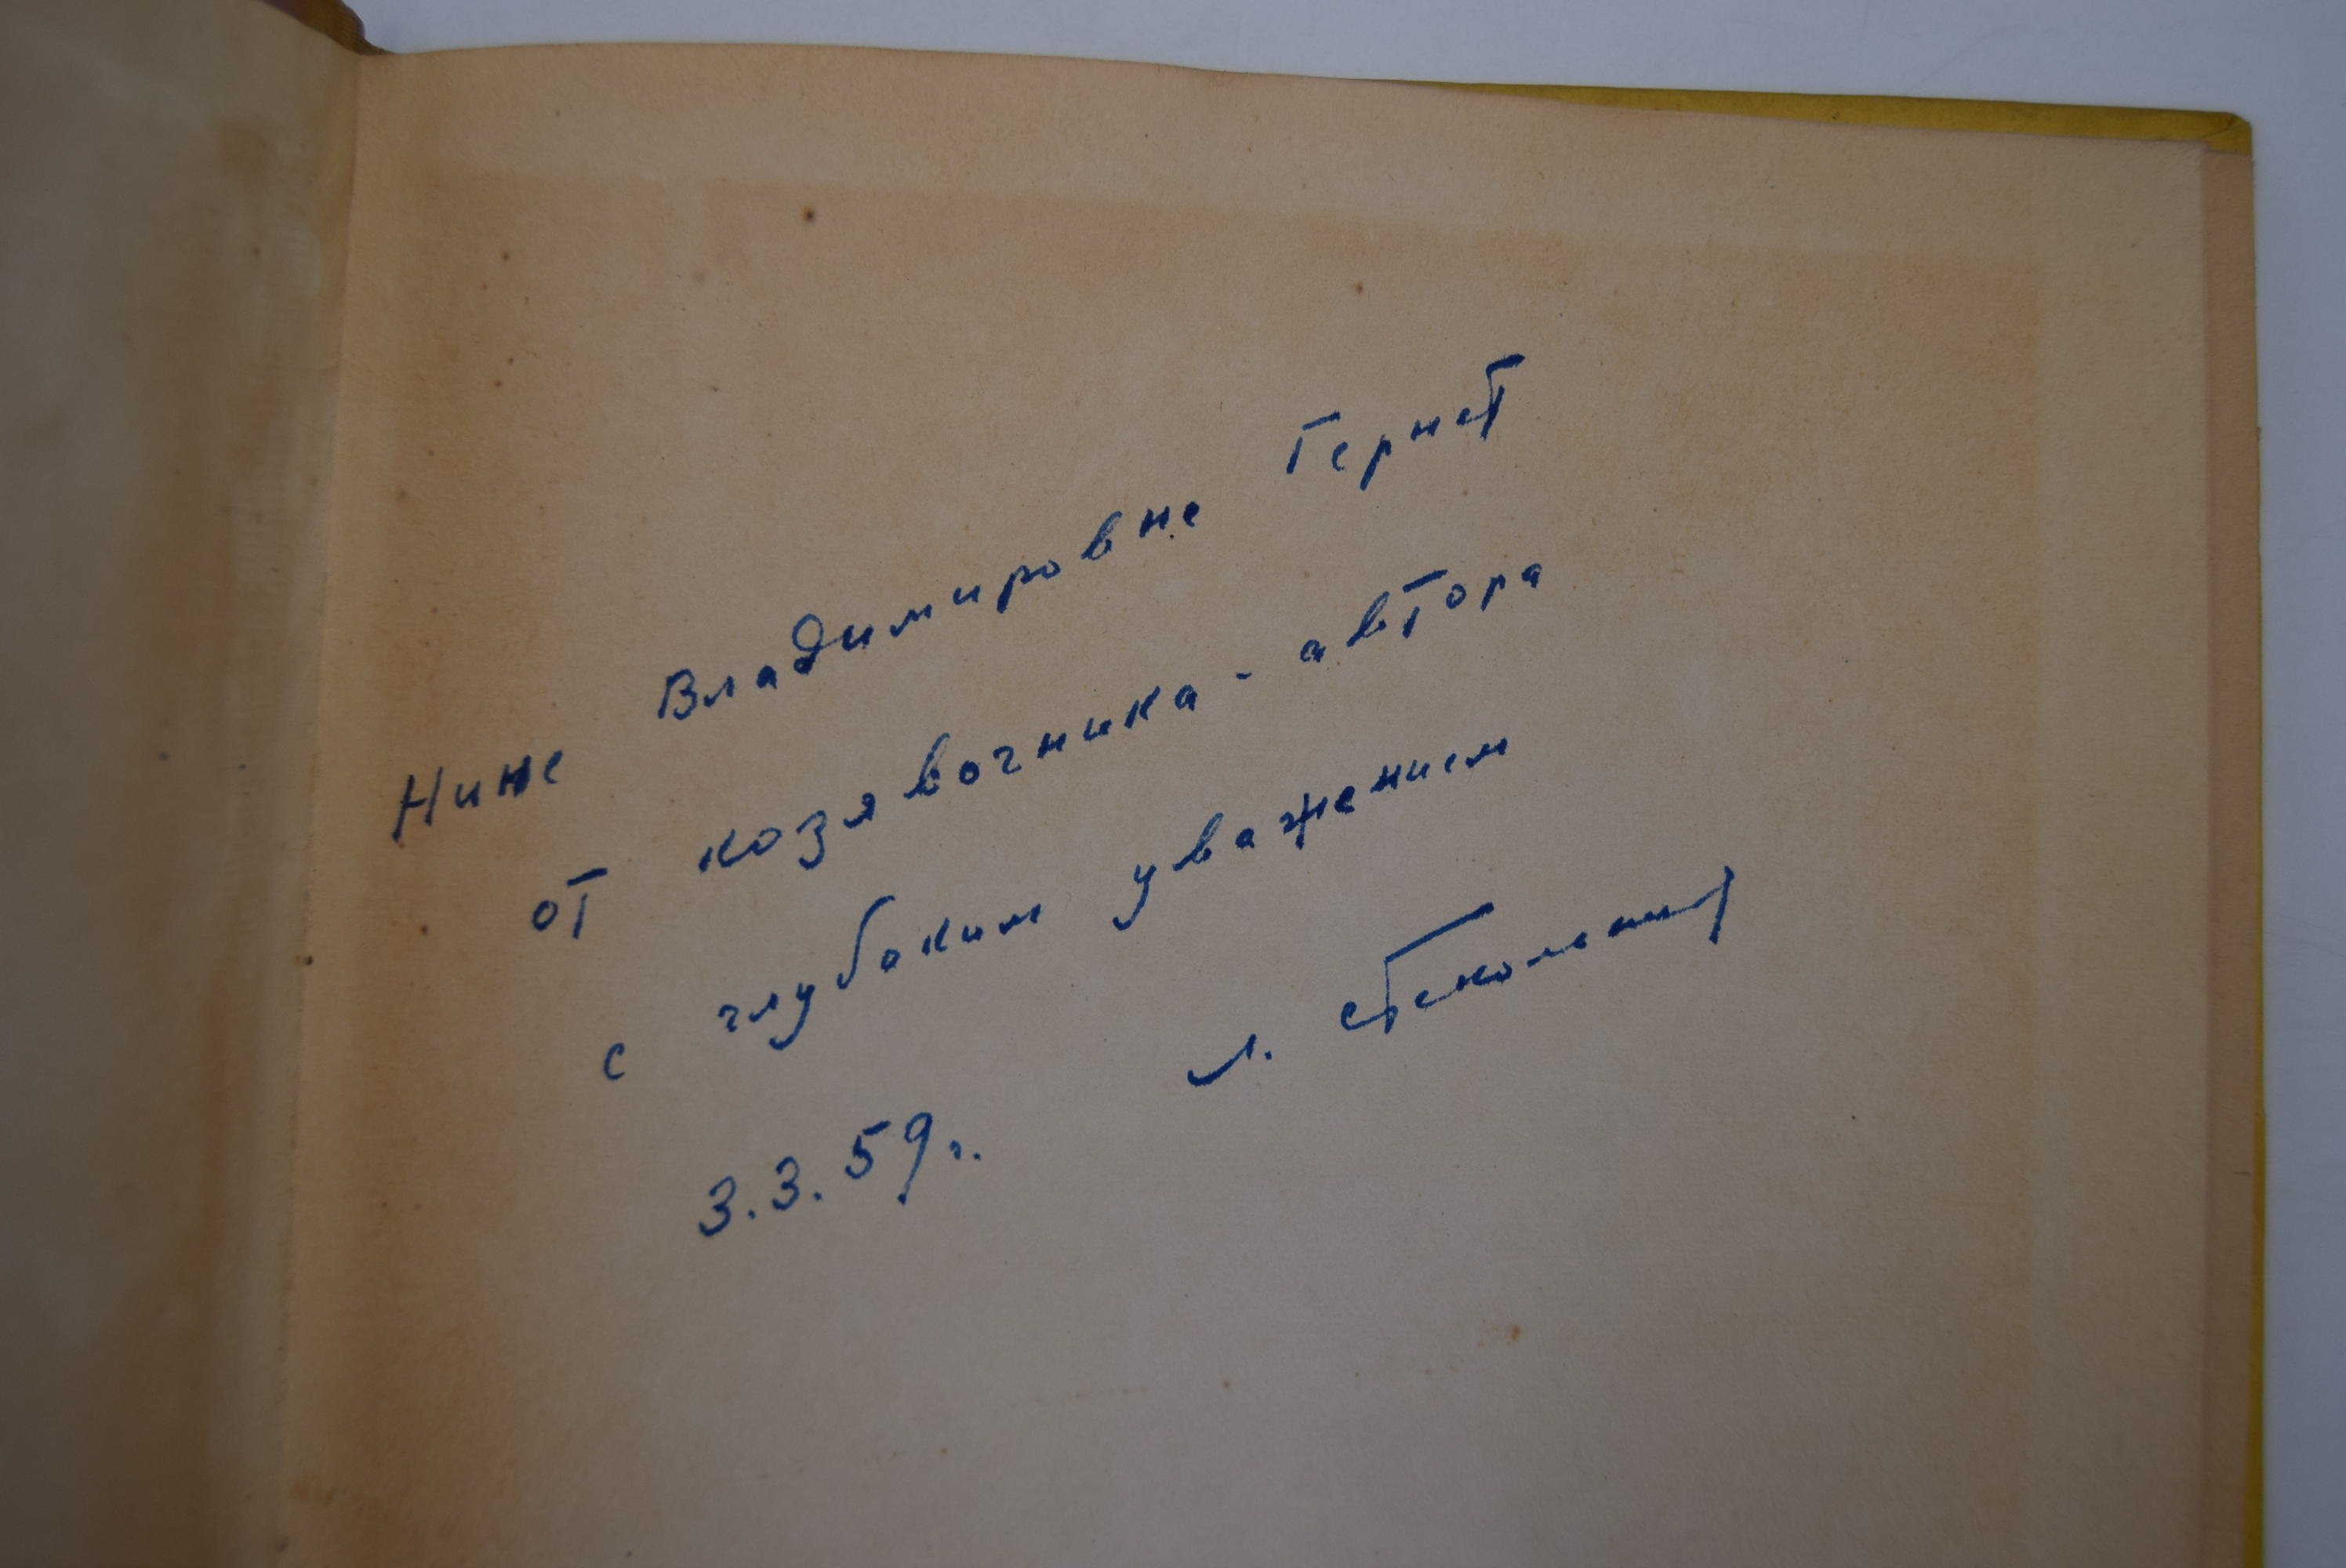 Нине Владимировне Гернет
от козявочника - автора
с глубоким уважением
л. Стекольник
3.3.59 г.